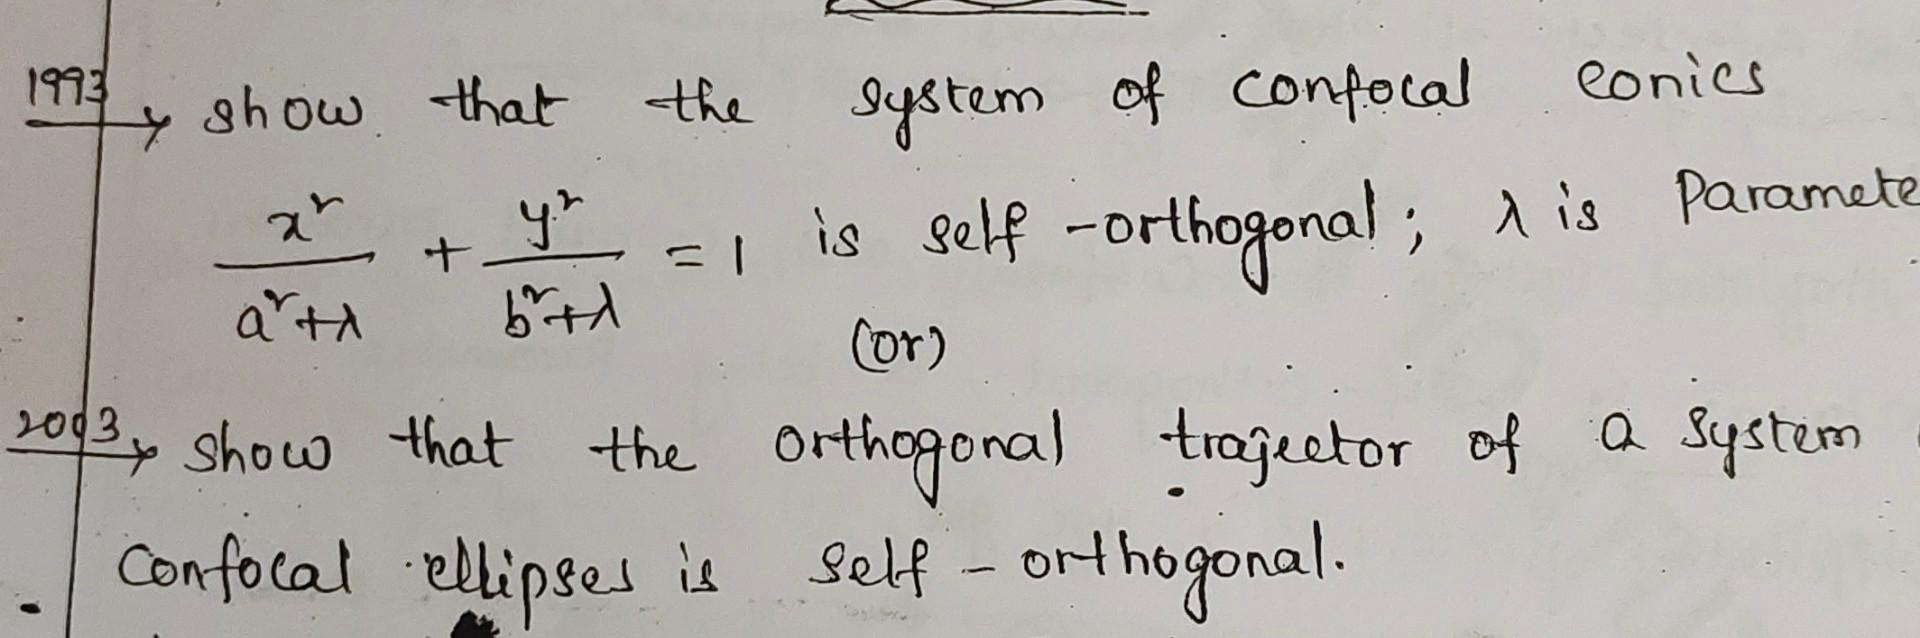 1993 → show that the system of confocal conics
x²/(a²+λ) + y²/(b²+λ) = 1 is self-orthogonal; λ is Paramete
(or)
2003 → show that the orthogonal trajector of a system
confocal ellipses is self-orthogonal.